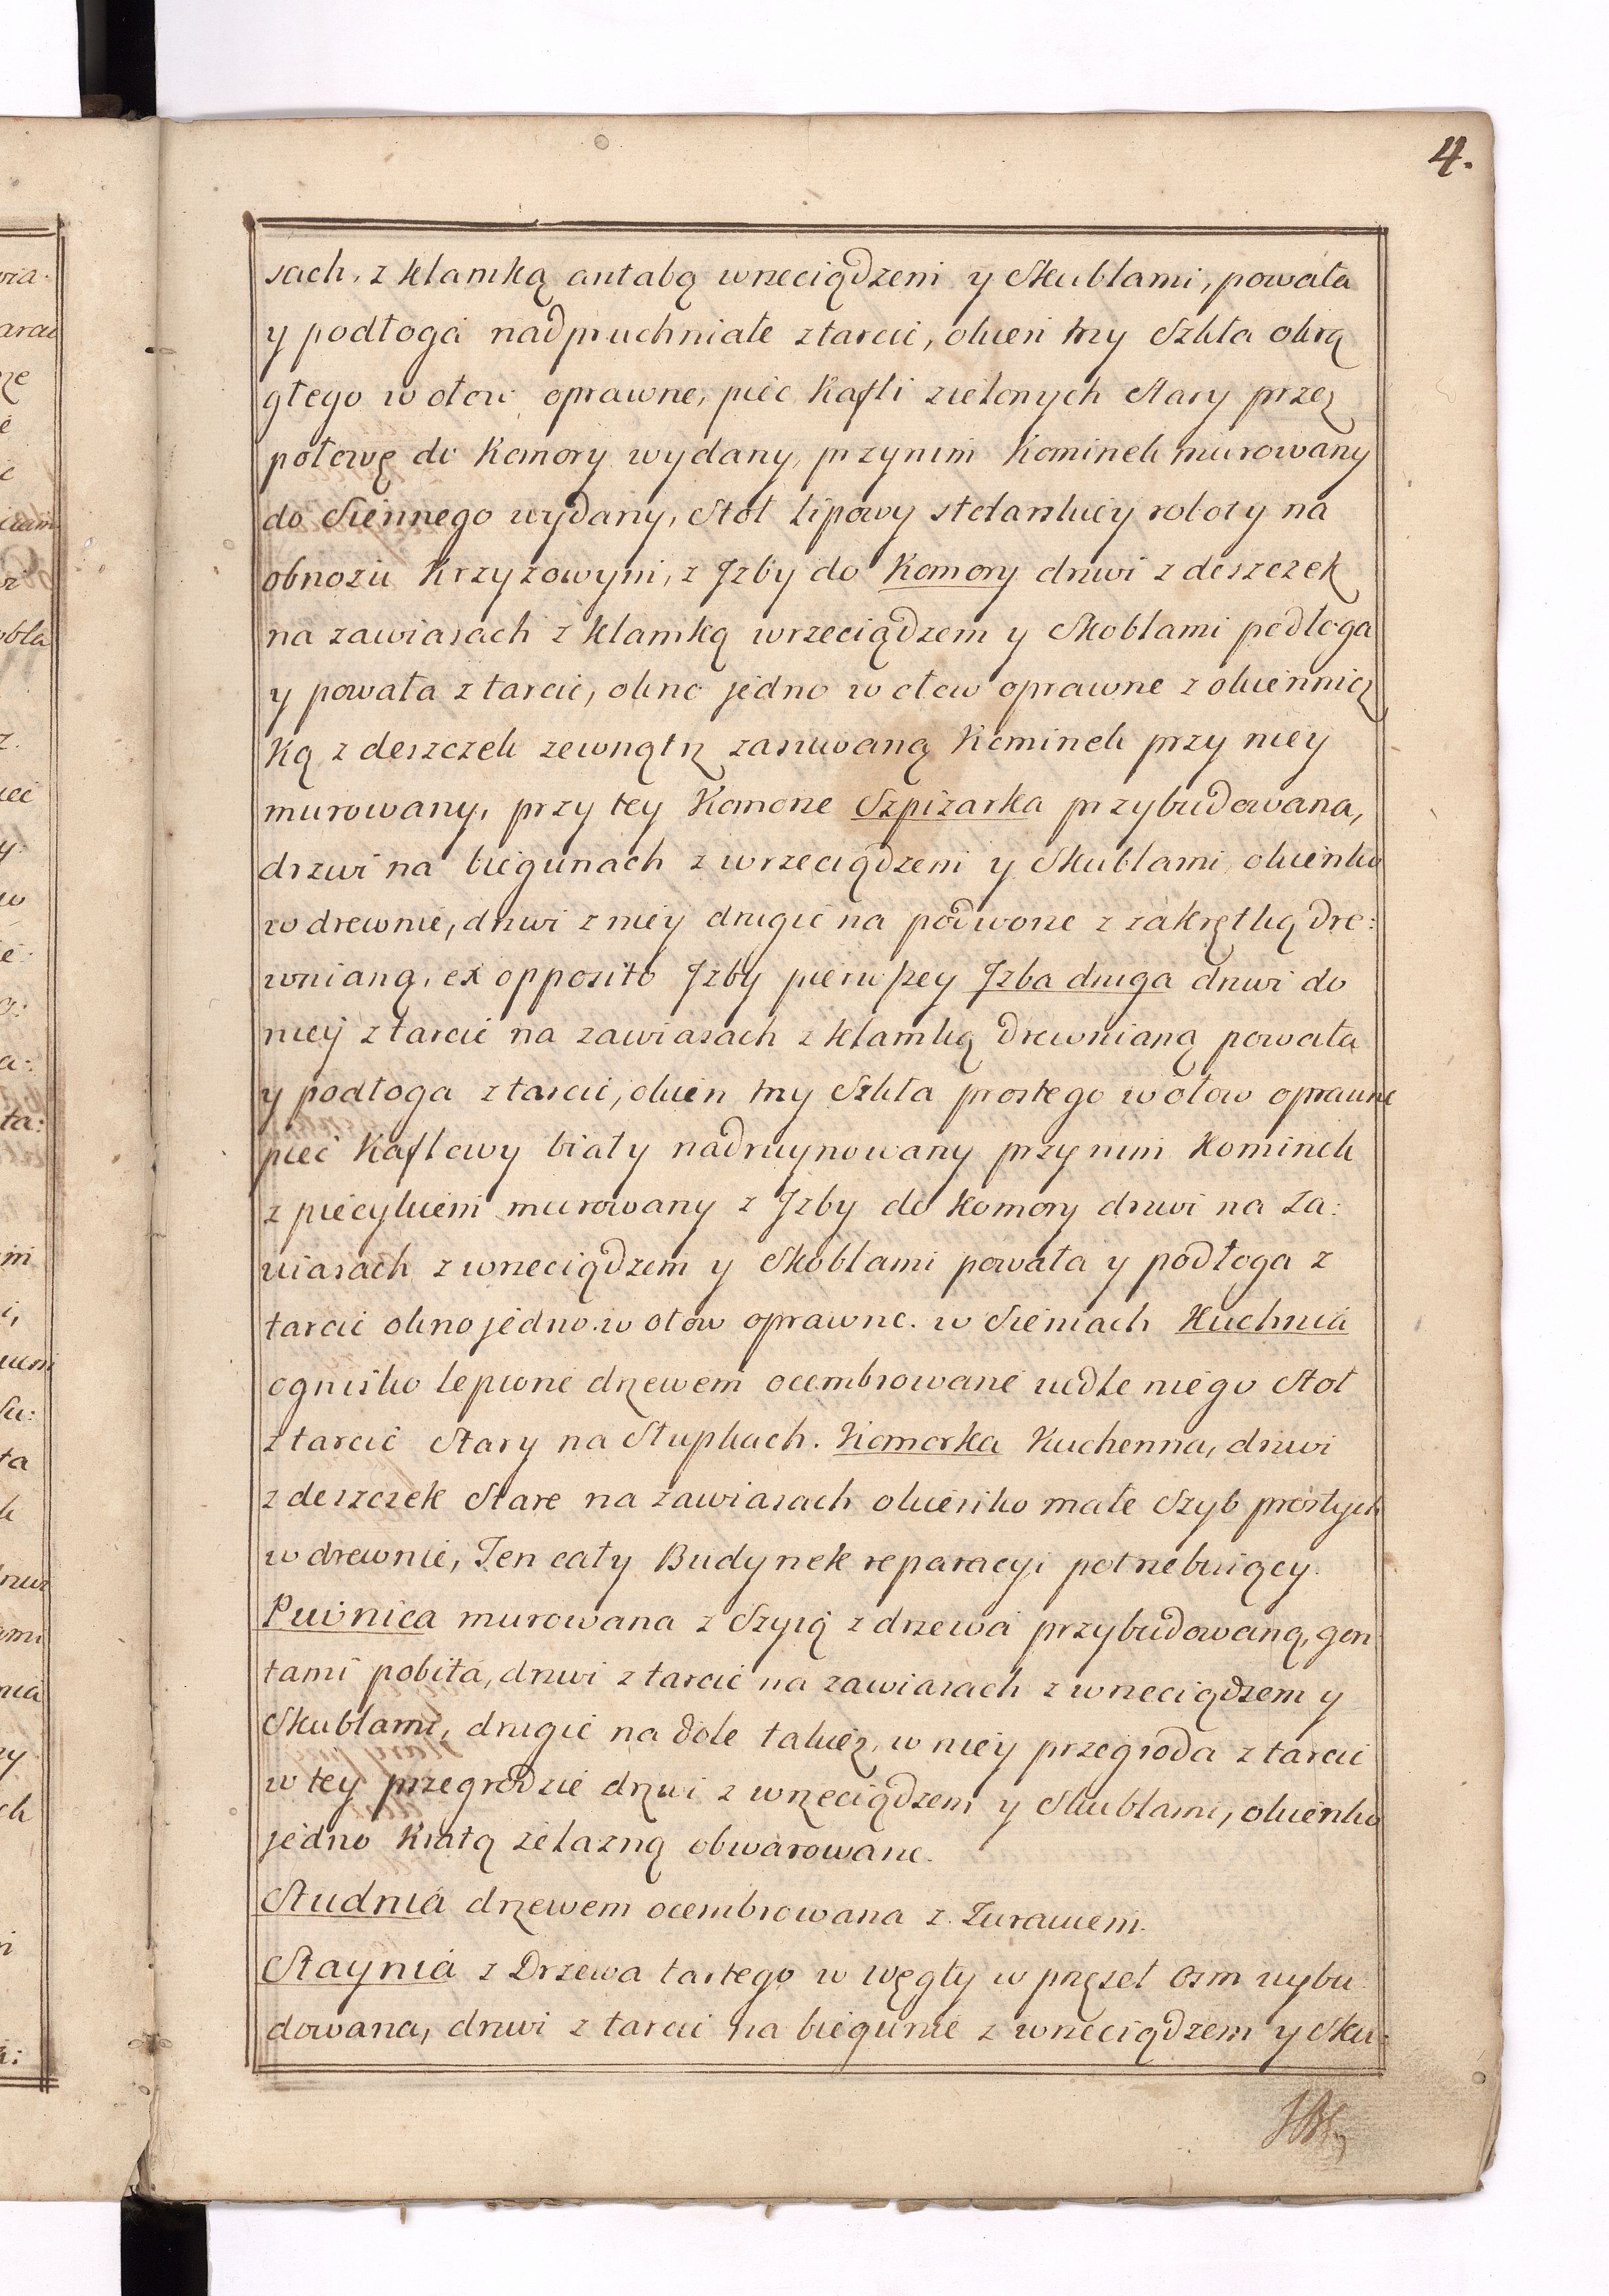 4.
sach, z klamką antabą wrzeciądzem y Skublami, powała
y podłoga nadpruchniałe z tarcic, okien trzy Szkła okrą
głego w ołow oprawne, piec Kafli zielonych Stary przez
połowę do Komory wydany, przynim Kominek murowany
do Siennego wydany, Stoł lipowy stolarskiey roboty na
obnozu Krzyzowym, z Jzby do Komory drzwi z deszczek
na zawiasach z klamką wrzeciądzem y Skoblami podłoga
y powała z tarcic, okno jedno w ołow oprawne z okiennicz
ką z deszczek zewnątrz zasuwaną Kominek przy niey
murowany, przy tey Komorze Szpizarka przybudowana,
drzwi na biegunach z wrzeciądzem y Skublami, okienko
w drewnie, drzwi z niey drugie na podworze z zakrętką dre:
wnianą, ex opposito Jzby pierwszey Jzba druga drzwi do
niey z tarcic na zawiasach z klamką drewnianą powała
y podłoga z tarcic, okien trzy Szkła prostego w ołow oprawne
piec Kaflowy biały nadruynowany przynim Kominek
z piecykiem murowany z Jzby do Komory drzwi na za:
wiasach z wrzeciądzem y Skoblami powała y podłoga z
tarcic okno jedno w ołow oprawne. w Sieniach Kuchnia
ognisko lepione drzewem ocembrowane wedle niego Stoł
z tarcic Stary na Słupkach. Komorka Kuchenna, drzwi
z deszczek Stare na zawiasach okienko małe Szyb prostych
w drewnie, Ten cały Budynek reparacyi potrzebuiący.
Piwnica murowana z Szyią z drzewa przybudowaną, gon
tami pobita, drzwi z tarcic na zawiasach z wrzeciądzem y
Skublami, drugie na dole takież, w niey przegroda z tarcic
w tey przegrodzie drzwi z wrzeciądzem y Skublami, okienko
jedno Kratą zelazną obwarowane.
Studnia drzewem ocembrowana z Zurawiem.
Staynia z Drzewa tartego w węgły w przęseł osm wybu
dowana, drzwi z tarcic na biegunie z wrzeciądzem y Sku: